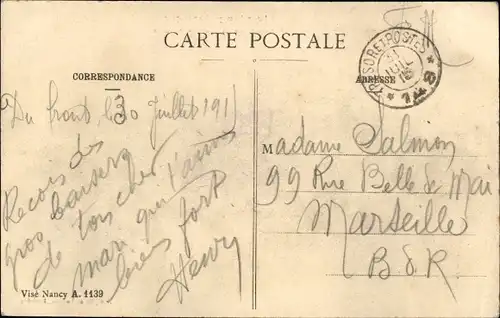 F M
CARTE POSTALE
CORRESPONDANCE
ADRESSE
TRESOR ET POSTES
31
JUIL
15
* 148 *
Du front, le 30 Juillet 191
Reçois des
gros baisers
de ton cher
mari qui t'aime
bien fort
Henry
Madame Salmon
99 Rue Belle de Mai
Marseille
B d R
Visé Nancy A. 1139